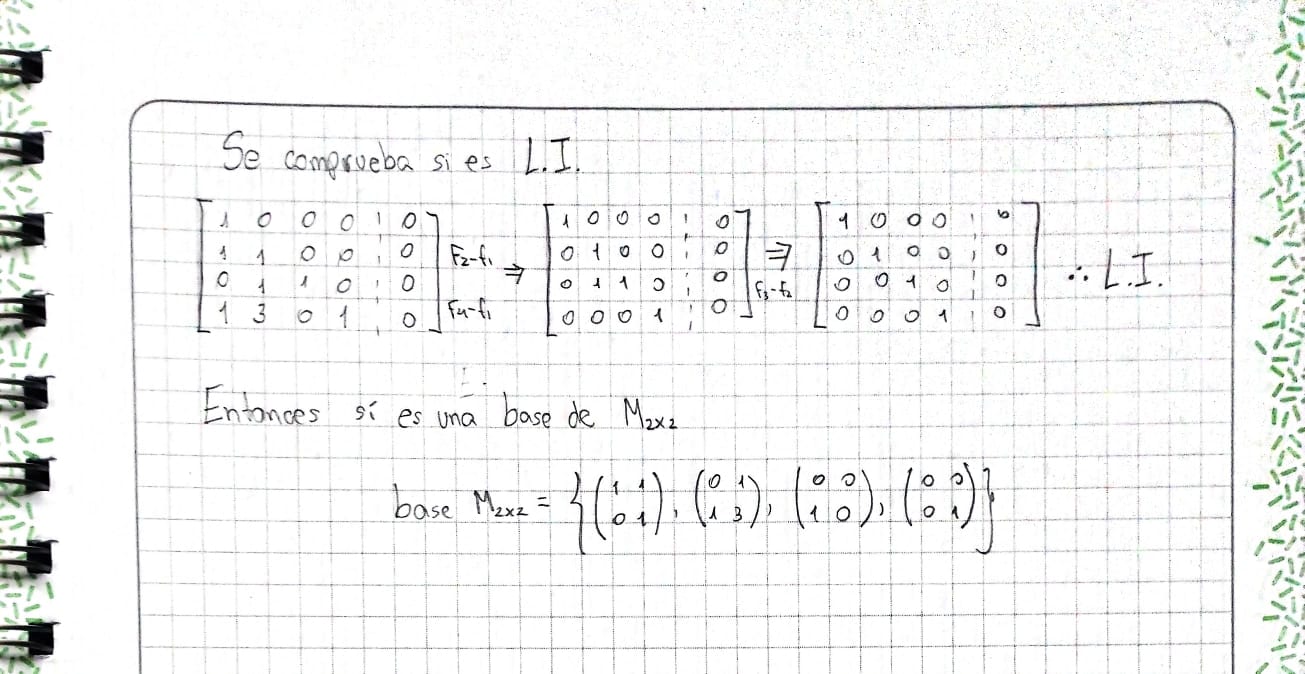 Se comprueba si es L.I.
[1 0 0 0 ¦ 0] [1 0 0 0 ¦ 0] [1 0 0 0 ¦ 0]
[1 1 0 0 ¦ 0] F₂-f₁ ⇒ [0 1 0 0 ¦ 0] ⇒ [0 1 0 0 ¦ 0] ∴ L.I.
[0 1 1 0 ¦ 0] [0 1 1 0 ¦ 0] F₃-f₂ [0 0 1 0 ¦ 0]
[1 3 0 1 ¦ 0] F₄-f₁ [0 0 0 1 ¦ 0] [0 0 0 1 ¦ 0]
Entonces sí es una base de M₂ₓ₂
base M₂ₓ₂ = {(1 1 / 0 1), (0 1 / 1 3), (0 0 / 1 0), (0 0 / 0 1)}